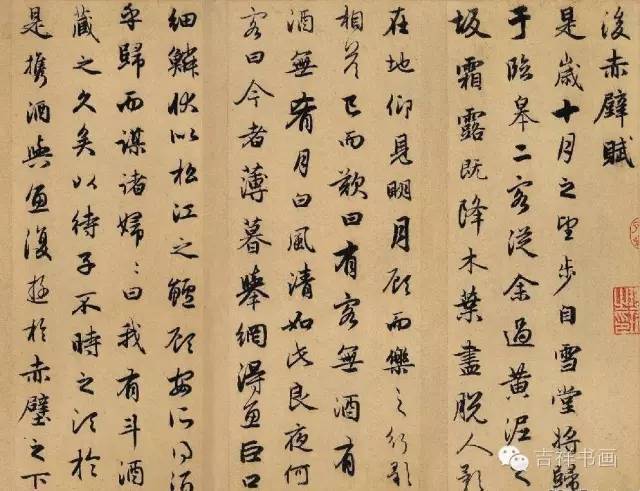 後赤壁賦
是歲十月之望步自雪堂將歸
于臨皋二客從余過黃泥之
坂霜露既降木葉盡脫人影
在地仰見明月顧而樂之行歌
相答已而歎曰有客無酒有
酒無肴月白風清如此良夜何
客曰今者薄暮舉網得魚巨口
細鱗狀似松江之鱸顧安所得酒
乎歸而謀諸婦〻曰我有斗酒
藏之久矣以待子不時之須於
是攜酒與魚復遊於赤壁之下
吉祥书画